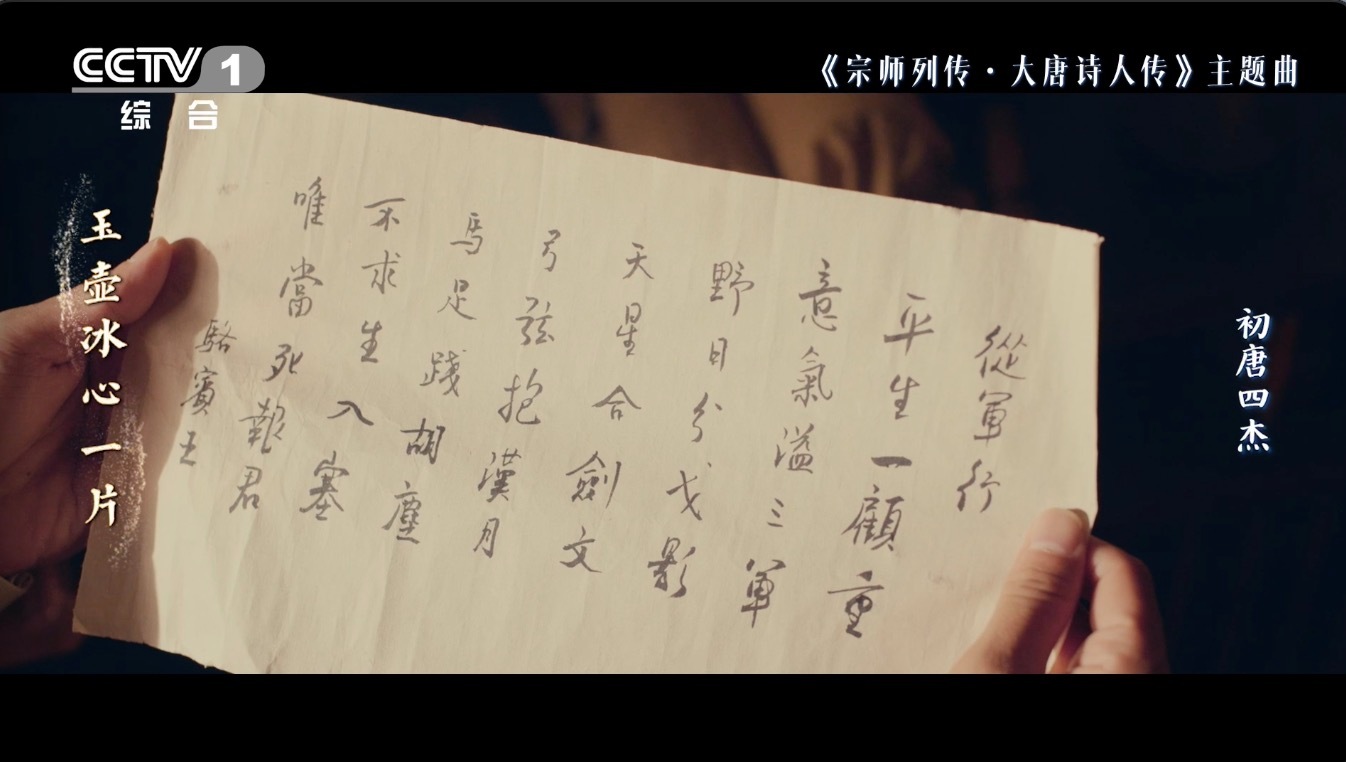 CCTV 1
综合
《宗师列传·大唐诗人传》主题曲
初唐四杰
從軍行
平生一顧重
意氣溢三軍
野日分戈影
天星合劍文
弓弦抱漢月
馬足踐胡塵
不求生入塞
唯當死報君
駱賓王
玉壶冰心一片